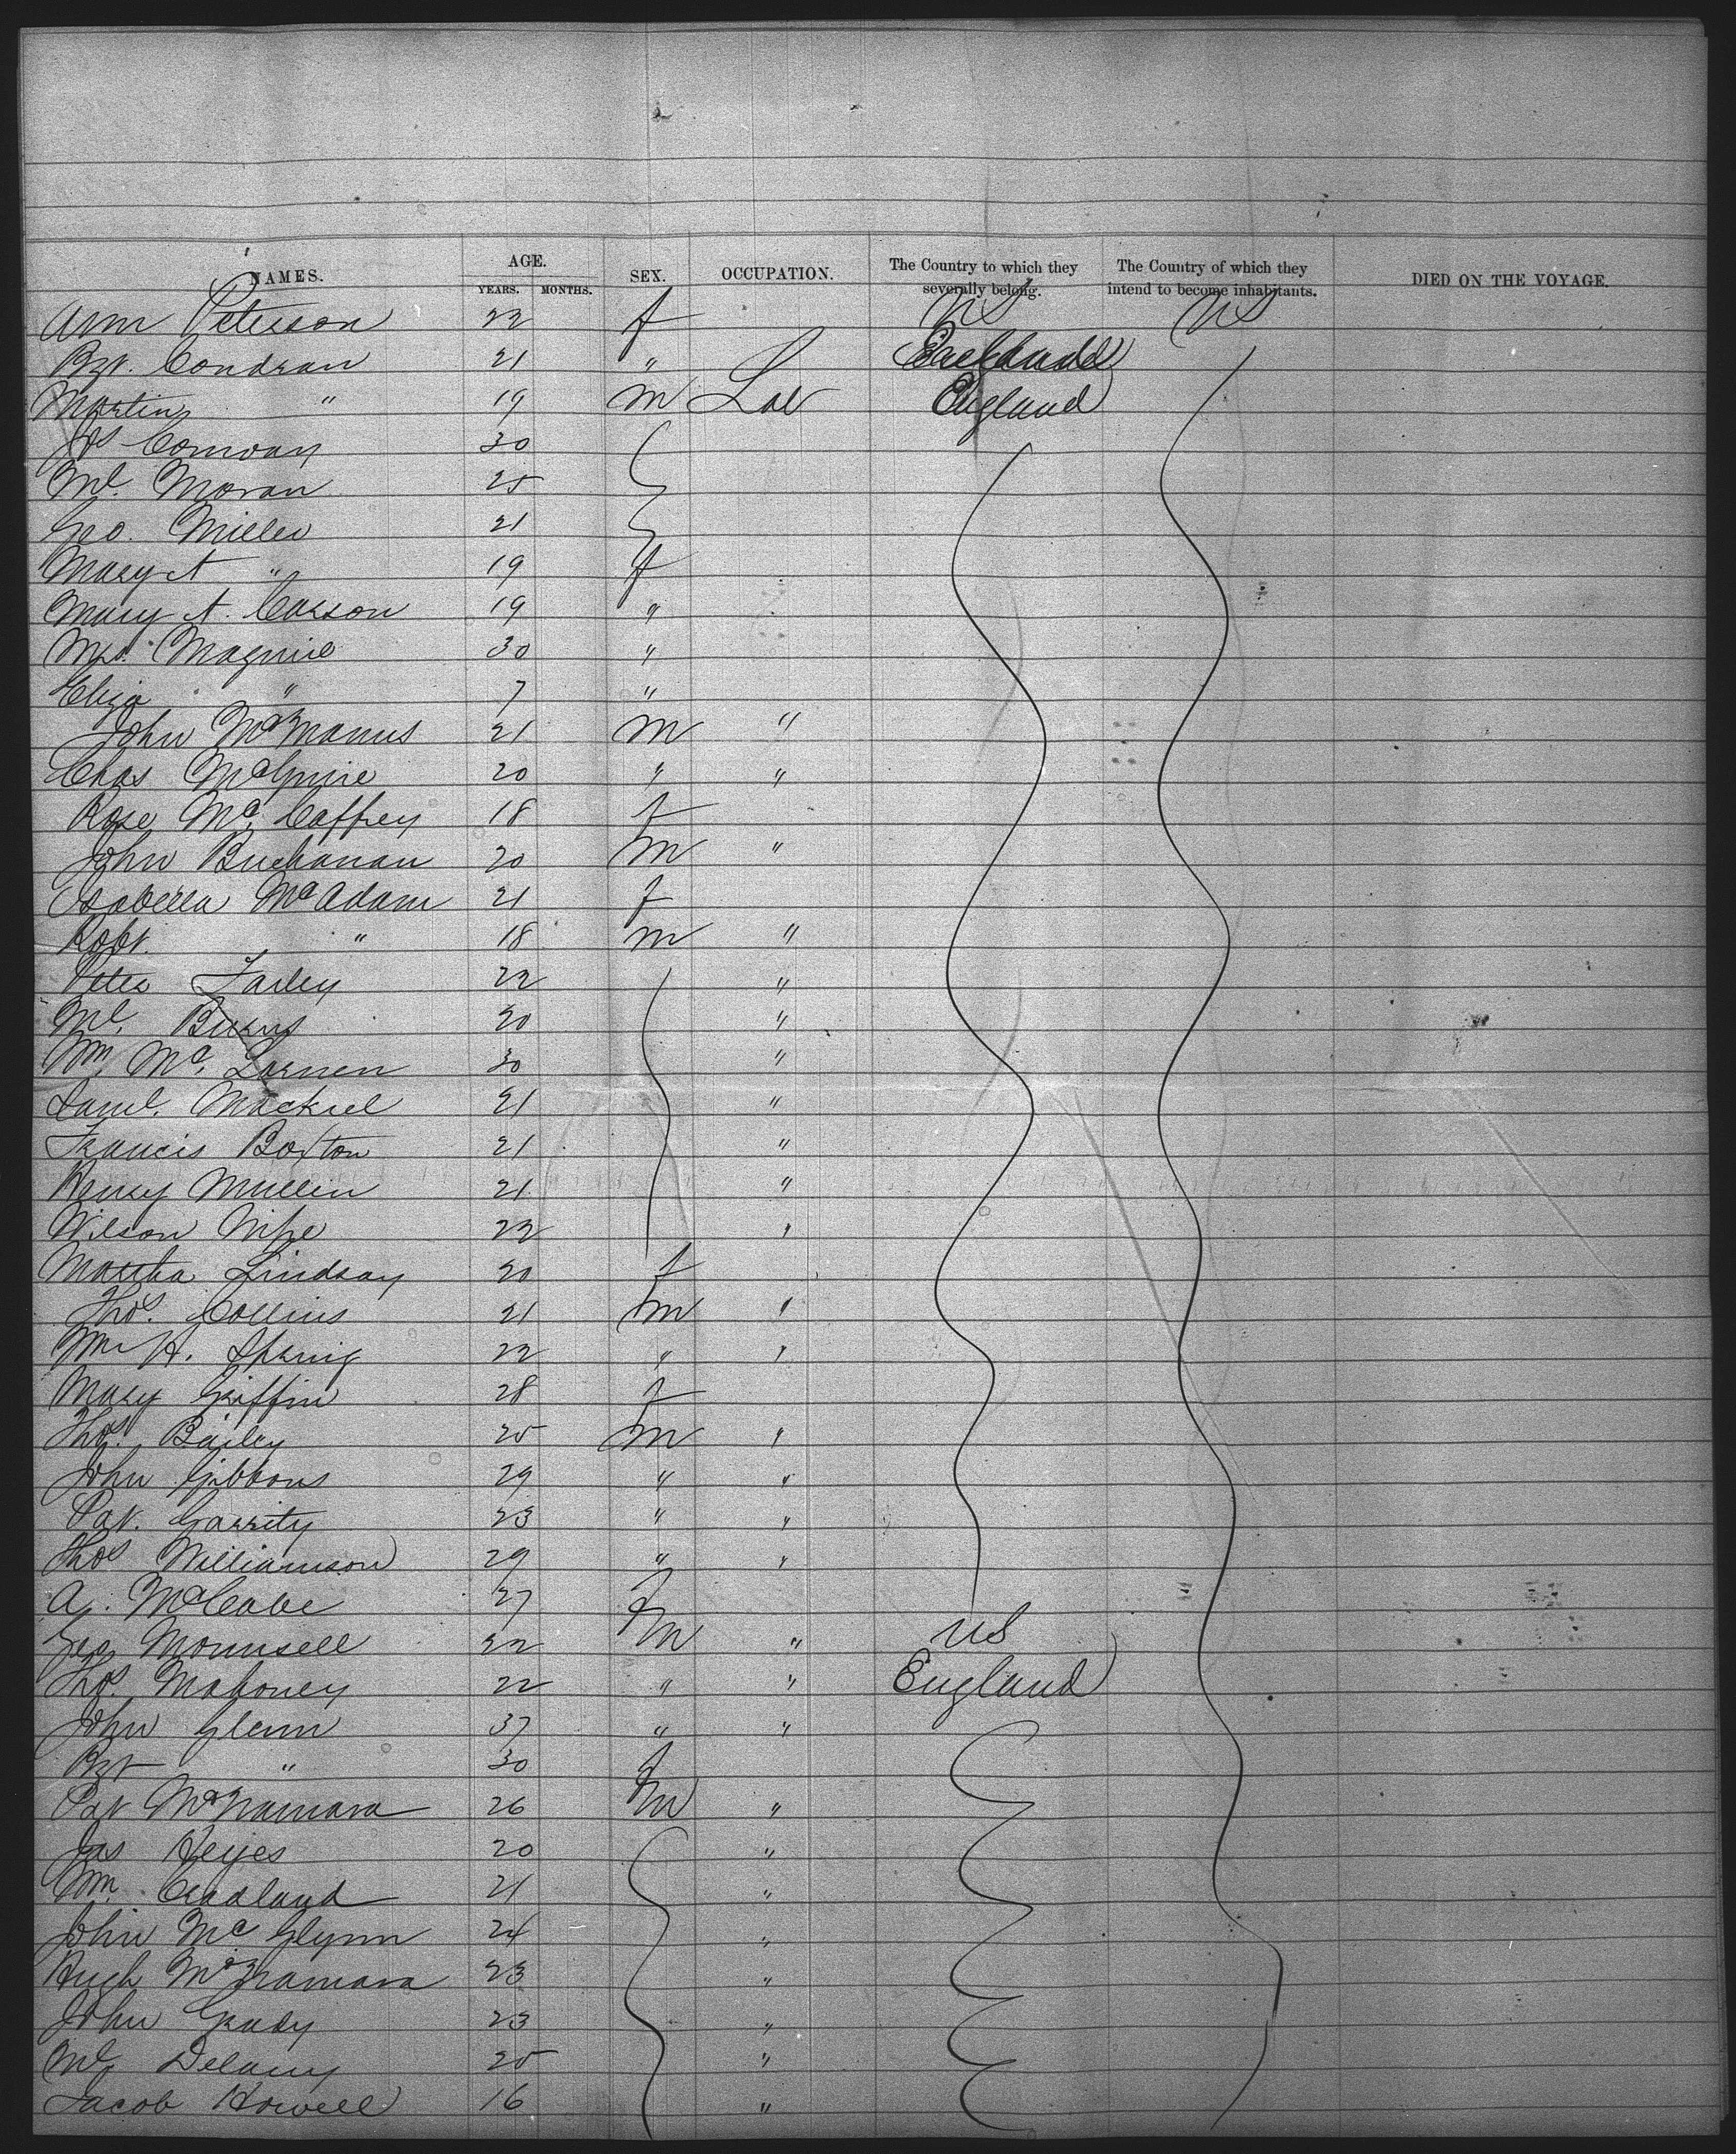 NAMES. AGE. YEARS. MONTHS. SEX. OCCUPATION. The Country to which they severally belong. The Country of which they intend to become inhabitants. DIED ON THE VOYAGE.
Ann Peterson 22 f US US
Bgt. Condran 21 "
Martin " 19 m Lab England
Jas Conway 30
Ml. Moran 25
Jno. Miller 21
Mary A " 19 f
Mary A. Carson 19 "
Mrs. Maguire 30 "
Eliza " 7 "
John McManus 21 m "
Chas McGuire 20 " "
Rose Mc Caffrey 18 f
John Buchanan 20 m "
Isabella McAdam 21 f
Robt. " 18 m "
Peter Farley 22 "
Ml. Burns 20 "
Wm Mc Larnen 30 "
Saml. Mackrel 21 "
Francis Boxton 21 "
Henry Mullin 21 "
Wilson 22 "
Martha Lindsay 20 f
Thos. Collins 21 m "
Wm H. 22 " "
Mary Griffin 28 f
Thos. Bailey 25 m "
John Gibbons 29 " "
Pat. Garrity 23 " "
Thos Williamson 29 " "
A. McCabe 27 f
Geo Mounsell 22 m " US
Thos. Mahoney 22 " " England
John Glenn 37 " "
Bgt " 30 f
Pat McNamara 26 m "
Jas Keyes 20 "
Wm. Cradland 21 "
John Mc Glynn 24 "
Hugh McNamara 23 "
John Grady 23 "
Ml. Delany 25 "
Jacob Howell 16 "